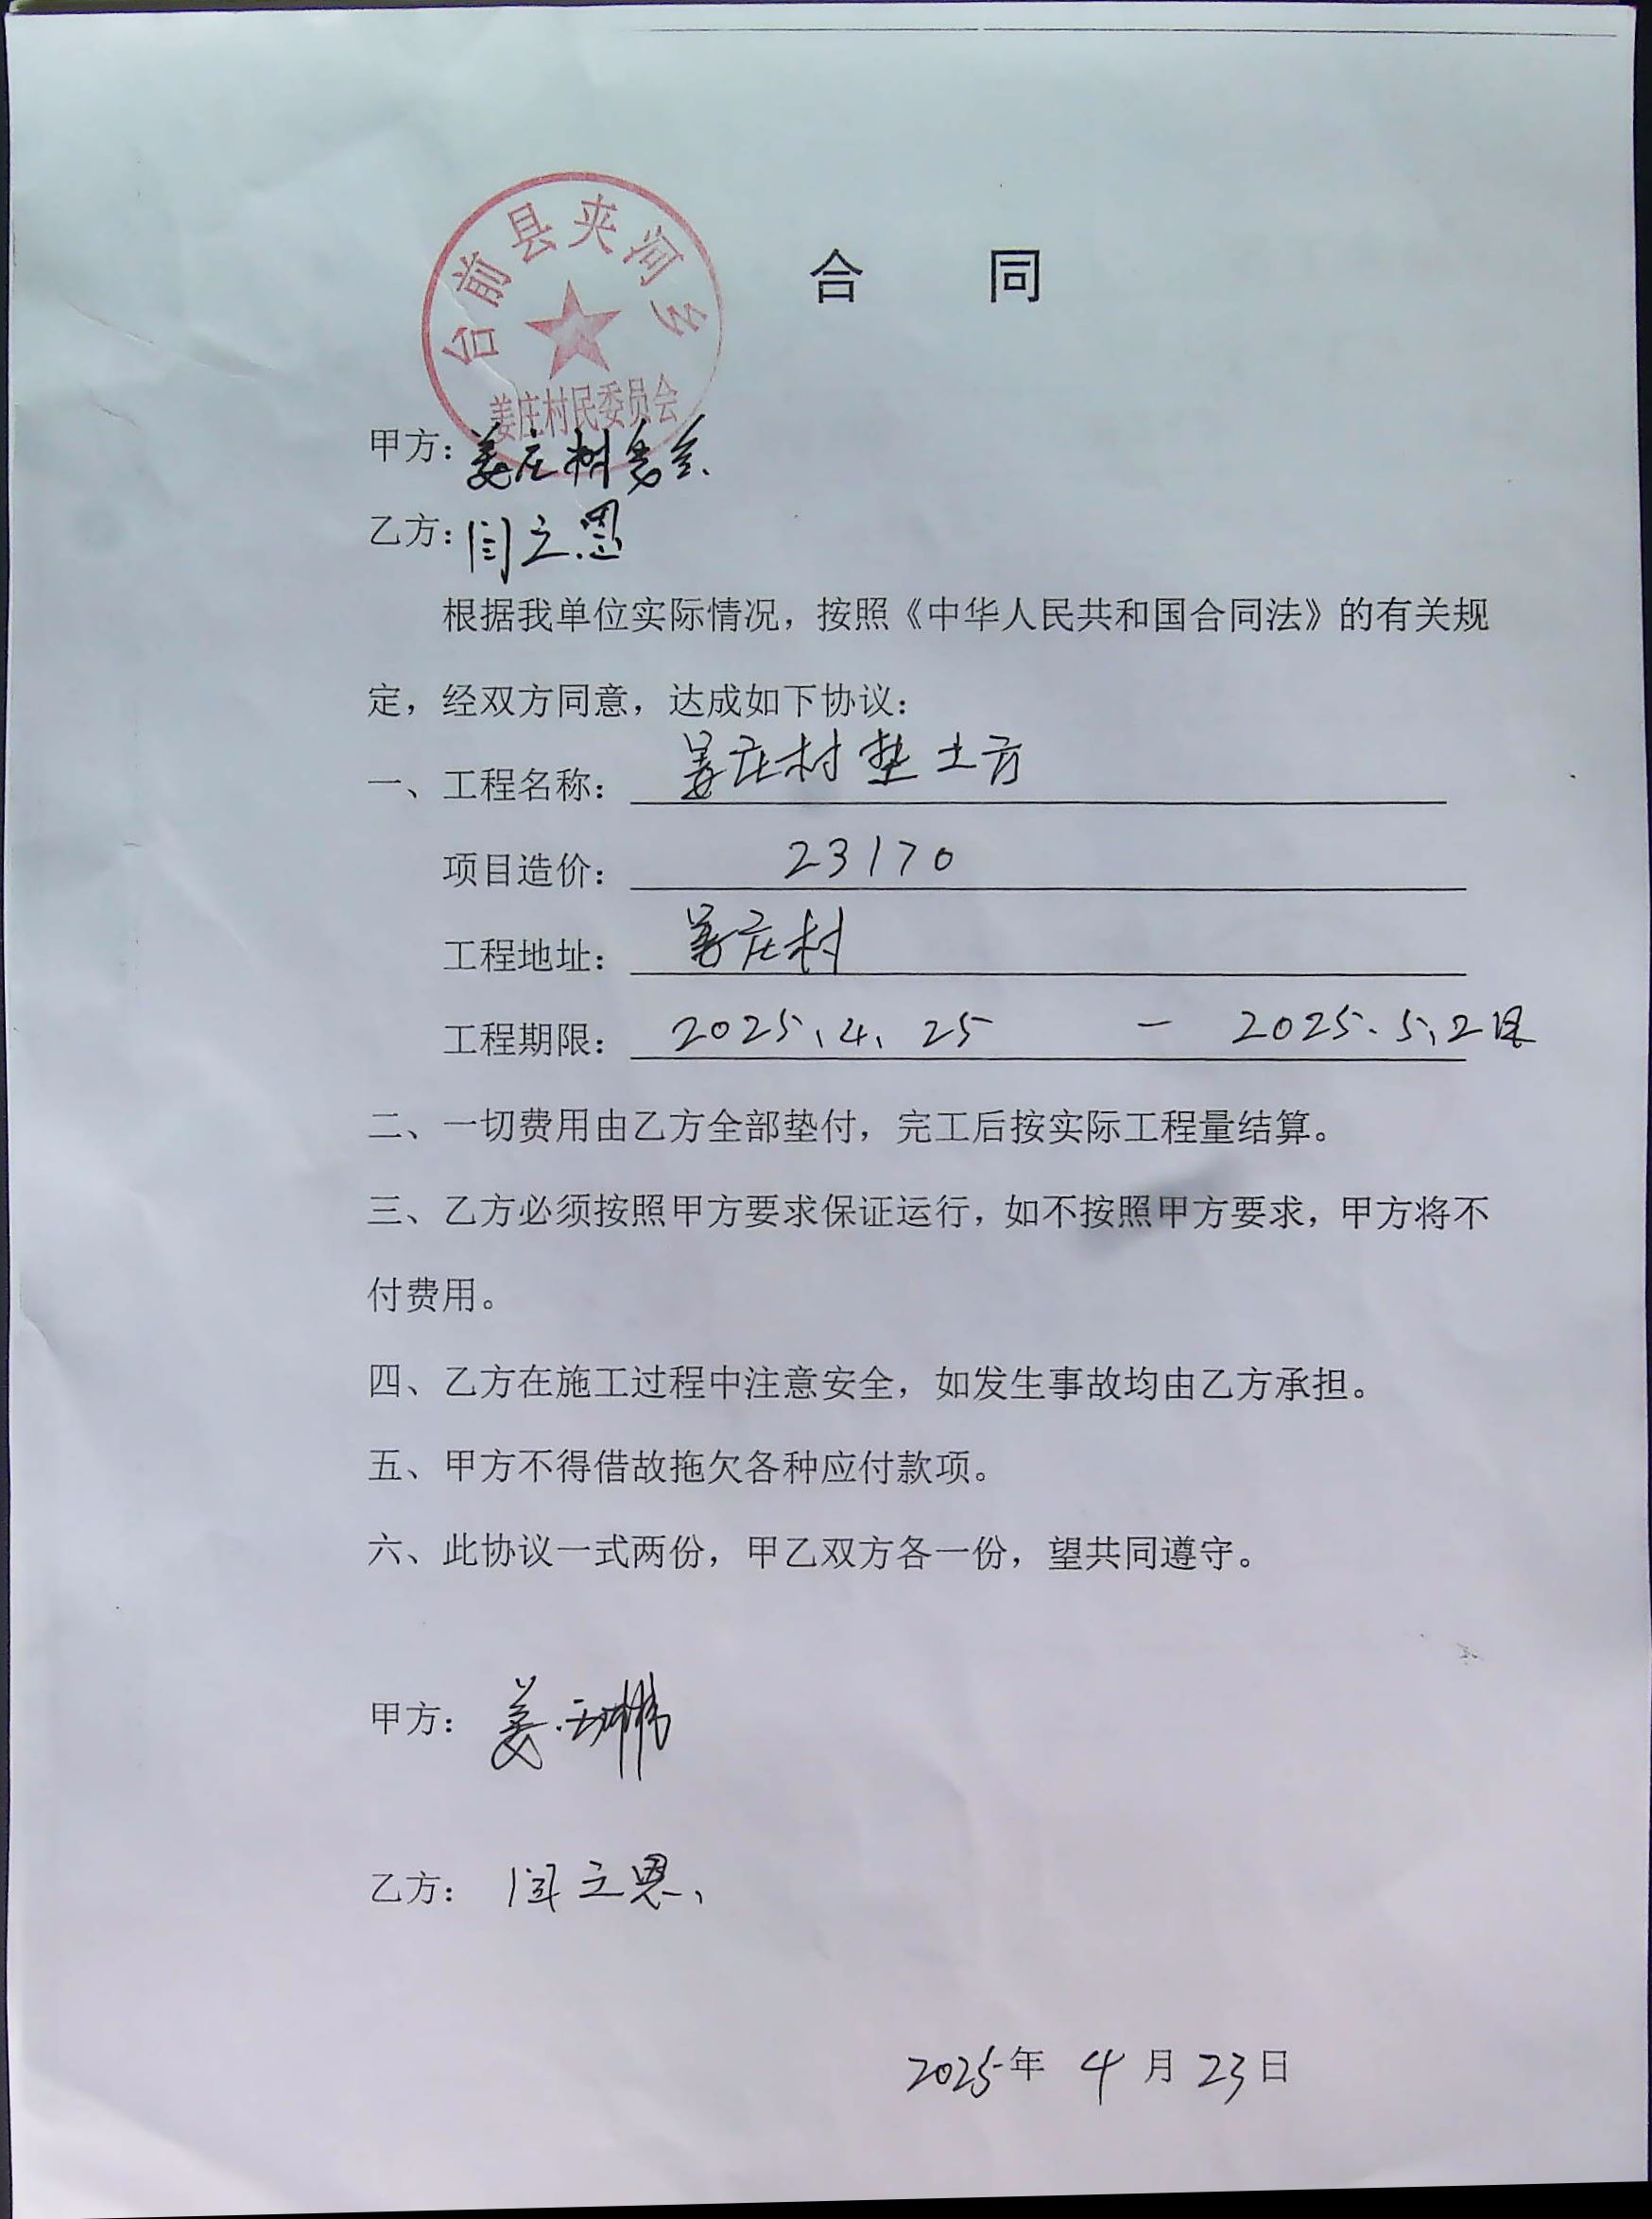 合 同
台前县夹河乡
姜庄村民委员会
甲方：姜庄村委会
乙方：闫立恩
根据我单位实际情况，按照《中华人民共和国合同法》的有关规
定，经双方同意，达成如下协议：
一、工程名称： 姜庄村垫土方
项目造价： 23170
工程地址： 姜庄村
工程期限： 2025.4.25 — 2025.5.2日
二、一切费用由乙方全部垫付，完工后按实际工程量结算。
三、乙方必须按照甲方要求保证运行，如不按照甲方要求，甲方将不
付费用。
四、乙方在施工过程中注意安全，如发生事故均由乙方承担。
五、甲方不得借故拖欠各种应付款项。
六、此协议一式两份，甲乙双方各一份，望共同遵守。
甲方： 姜
乙方： 闫立恩
2025年 4 月 23日